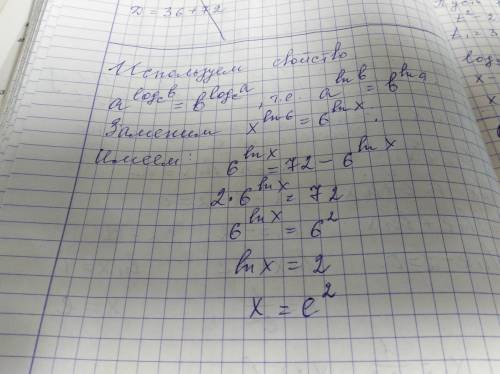 D = 36 + 72
Используем свойство
a^{log_c b} = b^{log_c a}, т.е. a^{ln b} = b^{ln a}
Заменим x^{ln 6} = 6^{ln x}.
Имеем: 6^{ln x} = 72 - 6^{ln x}
2 • 6^{ln x} = 72
6^{ln x} = 6^2
ln x = 2
x = e^2